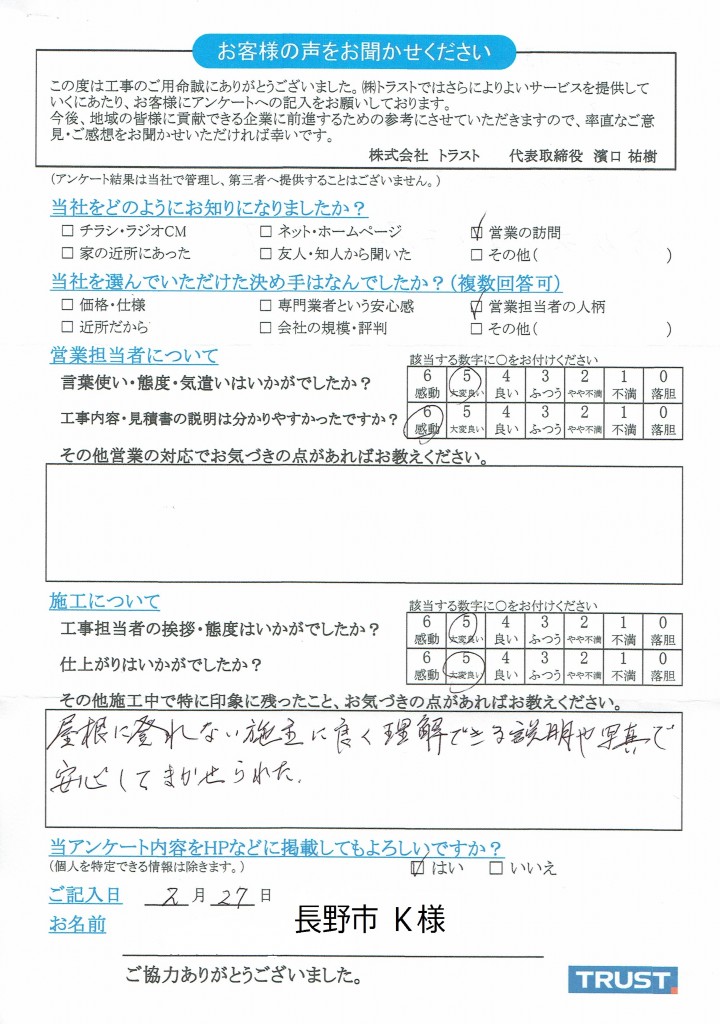 お客様の声をお聞かせください
この度は工事のご用命誠にありがとうございました。㈱トラストではさらによりよいサービスを提供して
いくにあたり、お客様にアンケートへの記入をお願いしております。
今後、地域の皆様に貢献できる企業に前進するための参考にさせていただきますので、率直なご意
見・ご感想をお聞かせいただければ幸いです。
株式会社 トラスト 代表取締役 濱口 祐樹
(アンケート結果は当社で管理し、第三者へ提供することはございません。)
当社をどのようにお知りになりましたか？
□ チラシ・ラジオCM □ ネット・ホームページ ☑ 営業の訪問
□ 家の近所にあった □ 友人・知人から聞いた □ その他( )
当社を選んでいただけた決め手はなんでしたか？(複数回答可)
□ 価格・仕様 □ 専門業者という安心感 ☑ 営業担当者の人柄
□ 近所だから □ 会社の規模・評判 □ その他( )
営業担当者について 該当する数字に○をお付けください
言葉使い・態度・気遣いはいかがでしたか？ 6 5 4 3 2 1 0
感動 大変良い 良い ふつう やや不満 不満 落胆
工事内容・見積書の説明は分かりやすかったですか？ 6 5 4 3 2 1 0
感動 大変良い 良い ふつう やや不満 不満 落胆
その他営業の対応でお気づきの点があればお教えください。
施工について 該当する数字に○をお付けください
工事担当者の挨拶・態度はいかがでしたか？ 6 5 4 3 2 1 0
感動 大変良い 良い ふつう やや不満 不満 落胆
仕上がりはいかがでしたか？ 6 5 4 3 2 1 0
感動 大変良い 良い ふつう やや不満 不満 落胆
その他施工中で特に印象に残ったこと、お気づきの点があればお教えください。
屋根に登れない施主に良く理解できる説明や写真で
安心してまかせられた.
当アンケート内容をHPなどに掲載してもよろしいですか？
(個人を特定できる情報は除きます。) ☑ はい □ いいえ
ご記入日 月 27 日
お名前 長野市 K様
ご協力ありがとうございました。
TRUST.